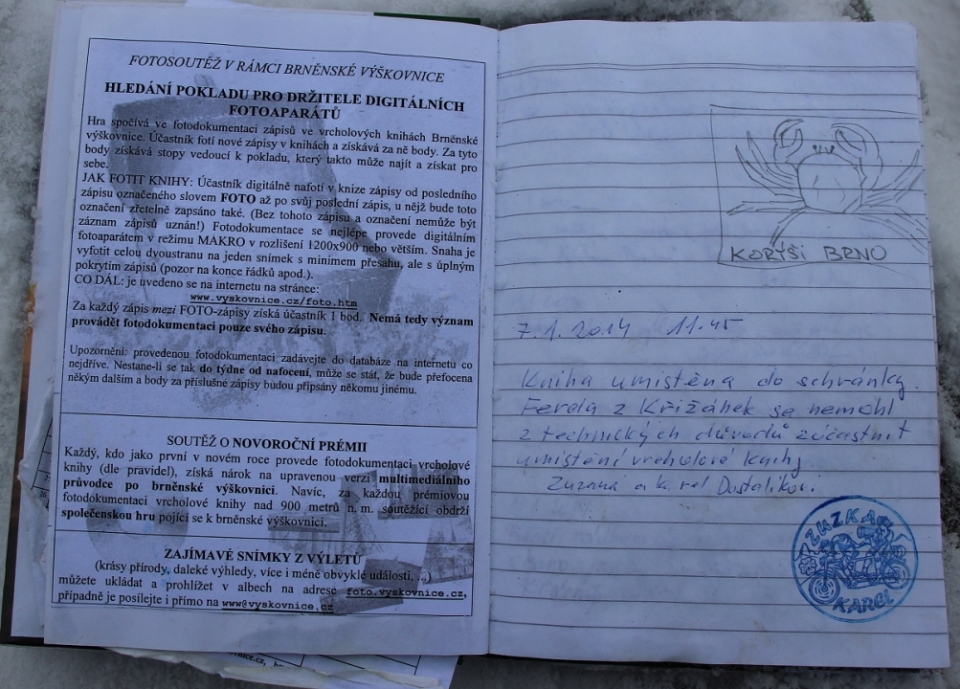 FOTOSOUTĚŽ V RÁMCI BRNĚNSKÉ VÝŠKOVNICE
HLEDÁNÍ POKLADU PRO DRŽITELE DIGITÁLNÍCH
FOTOAPARÁTŮ
Hra spočívá ve fotodokumentaci zápisů ve vrcholových knihách Brněnské
výškovnice. Účastník fotí nové zápisy v knihách a získává za ně body. Za tyto
body získává stopy vedoucí k pokladu, který takto může najít a získat pro
sebe.
JAK FOTIT KNIHY: Účastník digitálně nafotí v knize zápisy od posledního
zápisu označeného slovem FOTO až po svůj poslední zápis, u nějž bude toto
označení zřetelně zapsáno také. (Bez tohoto zápisu a označení nemůže být
záznam zápisů uznán!) Fotodokumentace se nejlépe provede digitálním
fotoaparátem v režimu MAKRO v rozlišení 1200x900 nebo větším. Snaha je
vyfotit celou dvoustranu na jeden snímek s minimem přesahu, ale s úplným
pokrytím zápisů (pozor na konce řádků apod.).
CO DÁL: je uvedeno se na internetu na stránce:
www.vyskovnice.cz/foto.htm
Za každý zápis mezi FOTO-zápisy získá účastník 1 bod. Nemá tedy význam
provádět fotodokumentaci pouze svého zápisu.
Upozornění: provedenou fotodokumentaci zadávejte do databáze na internetu co
nejdříve. Nestane-li se tak do týdne od nafocení, může se stát, že bude přefocena
někým dalším a body za příslušné zápisy budou připsány někomu jinému.
SOUTĚŽ O NOVOROČNÍ PRÉMII
Každý, kdo jako první v novém roce provede fotodokumentaci vrcholové
knihy (dle pravidel), získá nárok na upravenou verzi multimediálního
průvodce po brněnské výškovnici. Navíc, za každou prémiovou
fotodokumentaci vrcholové knihy nad 900 metrů n. m. soutěžící obdrží
společenskou hru pojící se k brněnské výškovnici.
ZAJÍMAVÉ SNÍMKY Z VÝLETŮ
(krásy přírody, daleké výhledy, více i méně obvyklé události, ...)
můžete ukládat a prohlížet v albech na adrese foto.vyskovnice.cz,
případně je posílejte i přímo na www@vyskovnice.cz
KORÝŠI BRNO
7.1.2014 11.45
Kniha umístěna do schránky.
Ferda z Křižánek se nemohl
z technických důvodů zúčastnit
umístění vrcholové knihy
Zuzana a Karel Dostalíkovi.
ZUZKA
KAREL